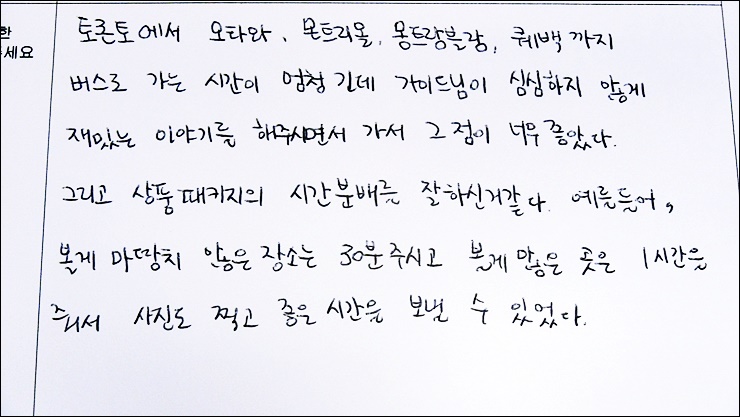 한
세요
토론토에서 오타와, 몬트리올, 몽트랑블랑, 퀘백까지
버스로 가는 시간이 엄청 긴데 가이드님이 심심하지 않게
재밌는 이야기를 해주시면서 가서 그 점이 너무 좋았다.
그리고 상품패키지의 시간분배를 잘하신거같다. 예를들어,
볼게 마땅치 않은 장소는 30분 주시고 볼게 많은 곳은 1시간을
줘서 사진도 찍고 좋은 시간을 보낼 수 있었다.